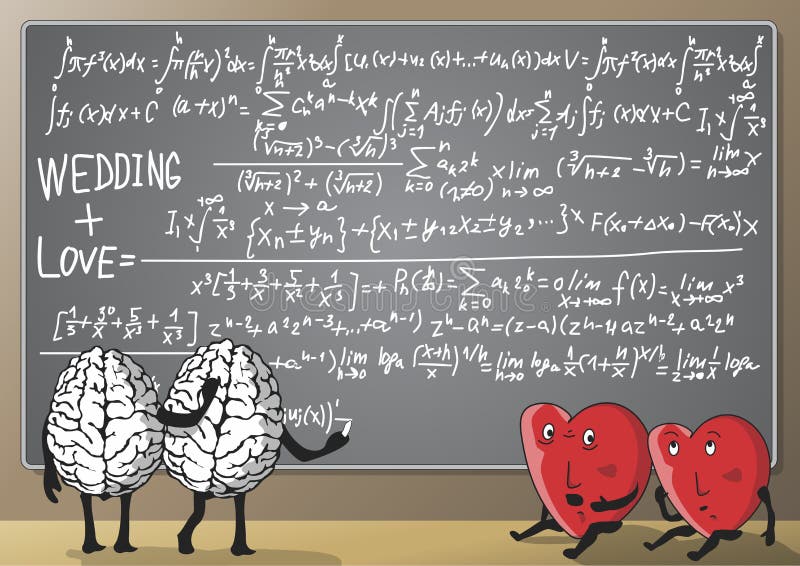 ∫₀ⁿ πf²(x)dx = ∫₀ⁿ π(h/r x)²dx = ∫₀ⁿ πr²/h² x²dx ∫ₐ [u₁(x)+u₂(x)+...+uₙ(x)]dx V = ∫₀ⁿ πf²(x)dx = ∫₀ⁿ πr²/h² x²dx
∫fⱼ(x)dx+C (a+x)ⁿ = Σ Cₙᵏaⁿ⁻ᵏxᵏ ∫(Σⱼ₌₁ⁿ Aⱼfⱼ(x))dx = Σⱼ₌₁ⁿ Aⱼ∫fⱼ(x)dx+C I₁x∫₁⁺∞ 1/x³
WEDDING
+
LOVE=
(√n+2)³-(∛n)³ / (∛n+2)²+(∛n+2) Σₖ₌₀ⁿ aₖ2ᵏ (1≠0) x lim n→∞ (∛n+2-∛n) = lim n→∞ x
x→a
I₁x∫₁⁺∞ 1/x³ {xₙ±yₙ} {x₁±y₁,x₂±y₂,...}x F(x₀+Δxₙ)-F(x₀)x
x³[1/3+3/x+5/x²+1/x³]=+ Pₙ(h)=Σₖ₌₀ⁿ aₖ2ᵏ=o lim x→+∞ f(x)=lim x→+∞ x³
[1/3+3⁰/x+5/x²+1/x³] zⁿ⁻²+a²2ⁿ⁻³+...+aⁿ⁻¹) zⁿ-aⁿ=(z-a)(zⁿ⁻¹+azⁿ⁻²+a²2ⁿ
+aⁿ⁻¹) lim h→0 logₐ(x+h/x)1/h = lim h→0 logₐ 1/x(1+h/x)x/h = lim z→∞ 1/x logₐ
juⱼ(x))'